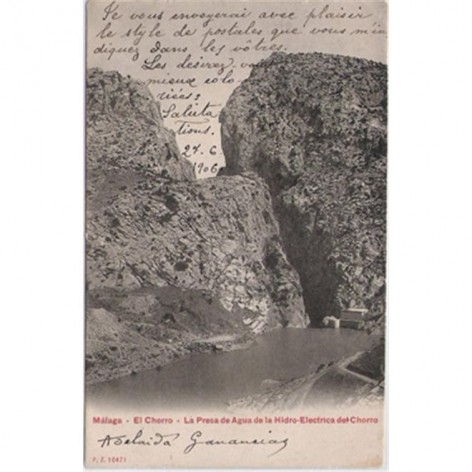 Je vous envoyerai avec plaisir
le style de postales que vous m'in
diquez dans les vôtres.
Les désirez vous
mieux colo
riées?
Saluta
tions.
27.6
1906
Málaga - El Chorro - La Presa de Agua de la Hidro-Electrica del Chorro
Adelaida Ganancias
P. Z. 10471